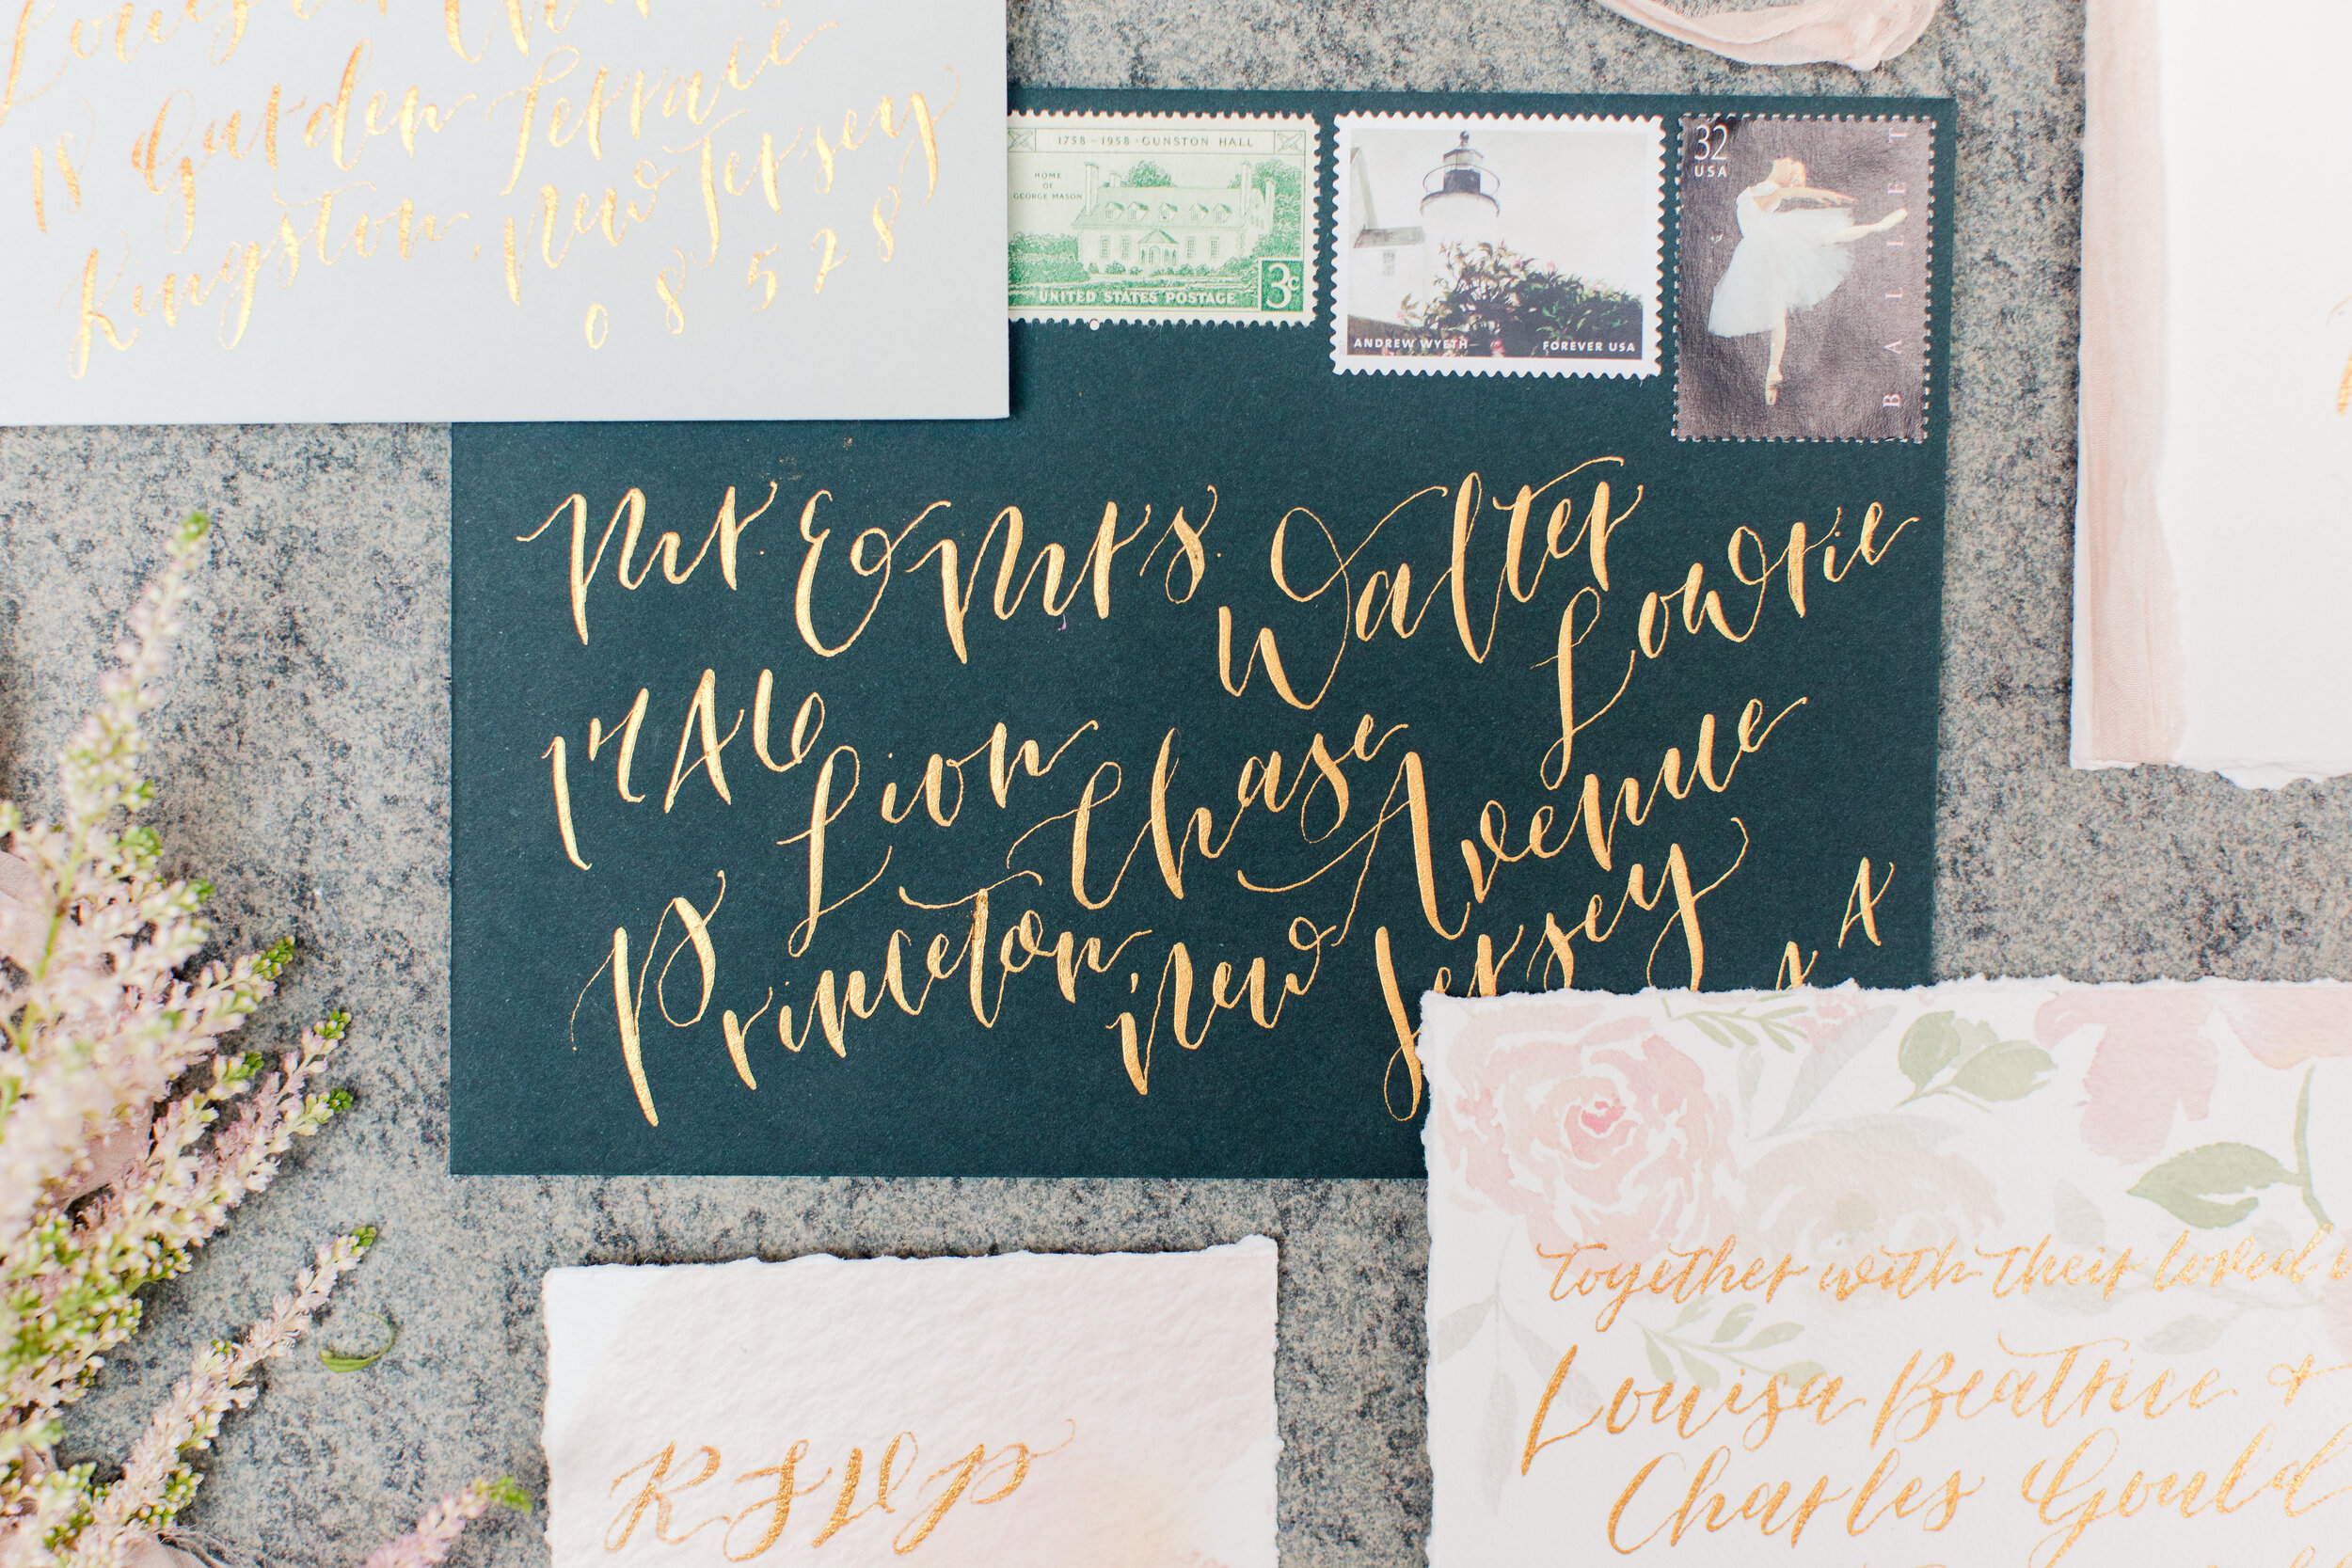 18 Garden Terrace
Kingston, New Jersey
08528
1758-1958·GUNSTON HALL
HOME
OF
GEORGE MASON
UNITED STATES POSTAGE 3c
ANDREW WYETH FOREVER USA
32
USA
BALLET
Mr. & Mrs. Walter Lowrie
Lion Chase Avenue
Princeton, New Jersey
RSVP
together with their loved
Louisa Beatrice +
Charles Gould